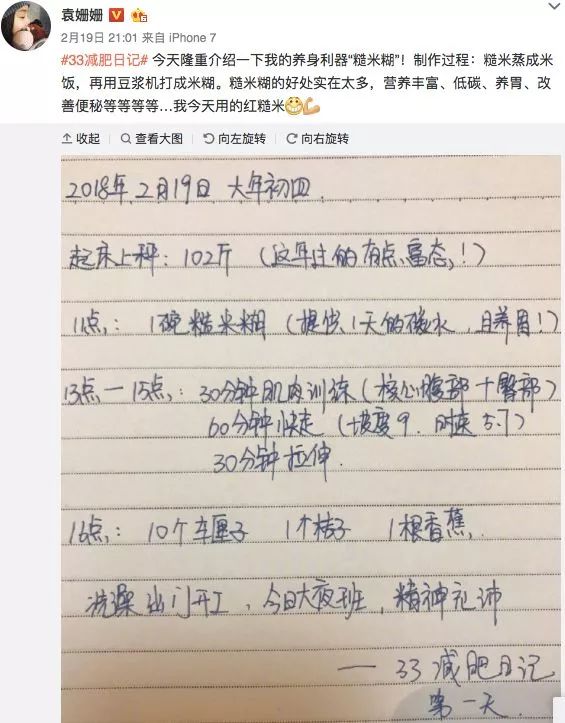 袁姗姗
2月19日 21:01 来自 iPhone 7
#33减肥日记# 今天隆重介绍一下我的养身利器“糙米糊”！制作过程：糙米蒸成米
饭，再用豆浆机打成米糊。糙米糊的好处实在太多，营养丰富、低碳、养胃、改
善便秘等等等等…我今天用的红糙米
收起 查看大图 向左旋转 向右旋转
2018年2月19日 大年初四.
起床上秤：102斤（这年过的有点富态！）
11点：1碗糙米糊（提供1天的碳水，且养胃！）
13点－15点：30分钟肌肉训练（核心腹部+臀部）
60分钟快走（坡度9.时速5.7）
30分钟拉伸.
16点：10个车厘子 1个桔子 1根香蕉.
洗澡出门开工，今日大夜班，精神充沛
——33减肥日记
第一天.